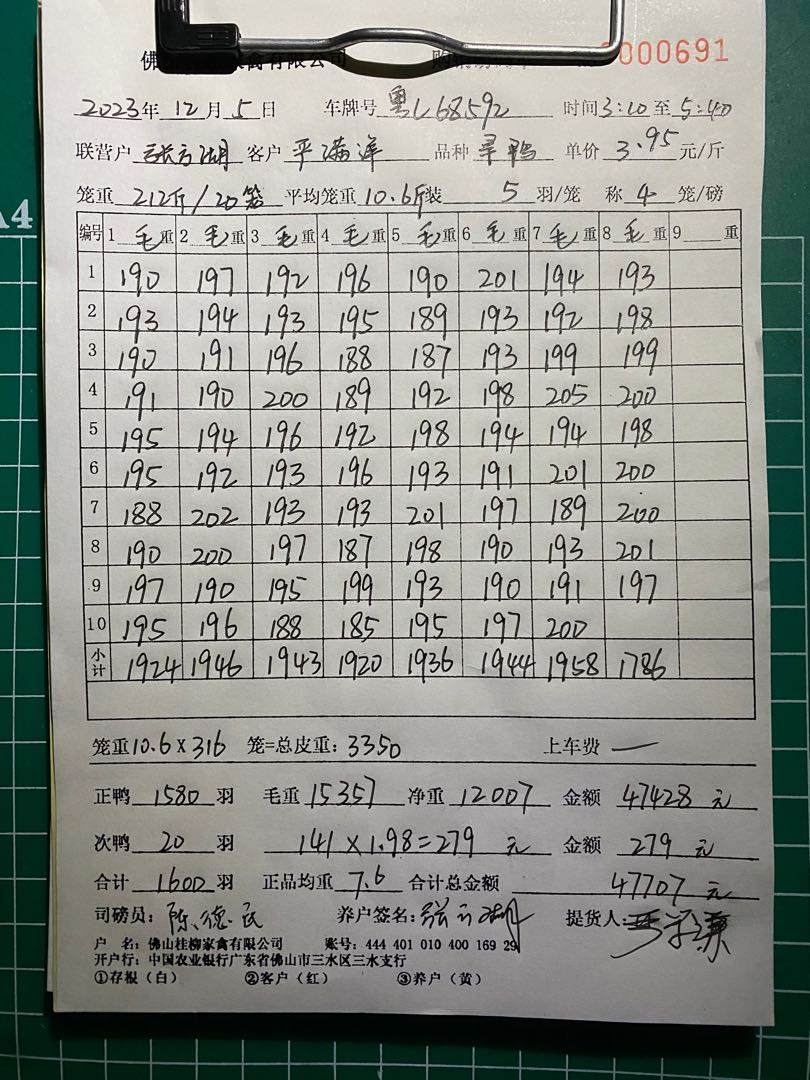 禽有限公司 000691
2023年 12月 5日 车牌号 粤L68592 时间3:10至5:40
联营户 张方湖 客户 平满洋 品种 旱鸭 单价 3.95元/斤
笼重 212斤/20笼 平均笼重 10.6斤装 5 羽/笼 称 4 笼/磅
编号 1 毛重 2 毛重 3 毛重 4 毛重 5 毛重 6 毛重 7 毛重 8 毛重 9 重
1 190 197 192 196 190 201 194 193
2 193 194 193 195 189 193 192 198
3 190 191 196 188 187 193 199 199
4 191 190 200 189 192 198 205 200
5 195 194 196 192 198 194 194 198
6 195 192 193 196 193 191 201 200
7 188 202 193 193 201 197 189 200
8 190 200 197 187 198 190 193 201
9 197 190 195 199 193 190 191 197
10 195 196 188 185 195 197 200
小计 1924 1946 1943 1920 1936 1944 1958 1786
笼重10.6×316 笼=总皮重:3350 上车费 —
正鸭 1580 羽 毛重 15357 净重 12007 金额 47428 元
次鸭 20 羽 141×1.98=279 元 金额 279 元
合计 1600 羽 正品均重 7.6 合计总金额 47707 元
司磅员: 陈德民 养户签名: 张方湖 提货人:
户 名: 佛山桂柳家禽有限公司 账号: 444 401 010 400 169 29
开户行: 中国农业银行广东省佛山市三水区三水支行
①存根(白) ②客户(红) ③养户(黄)
A4